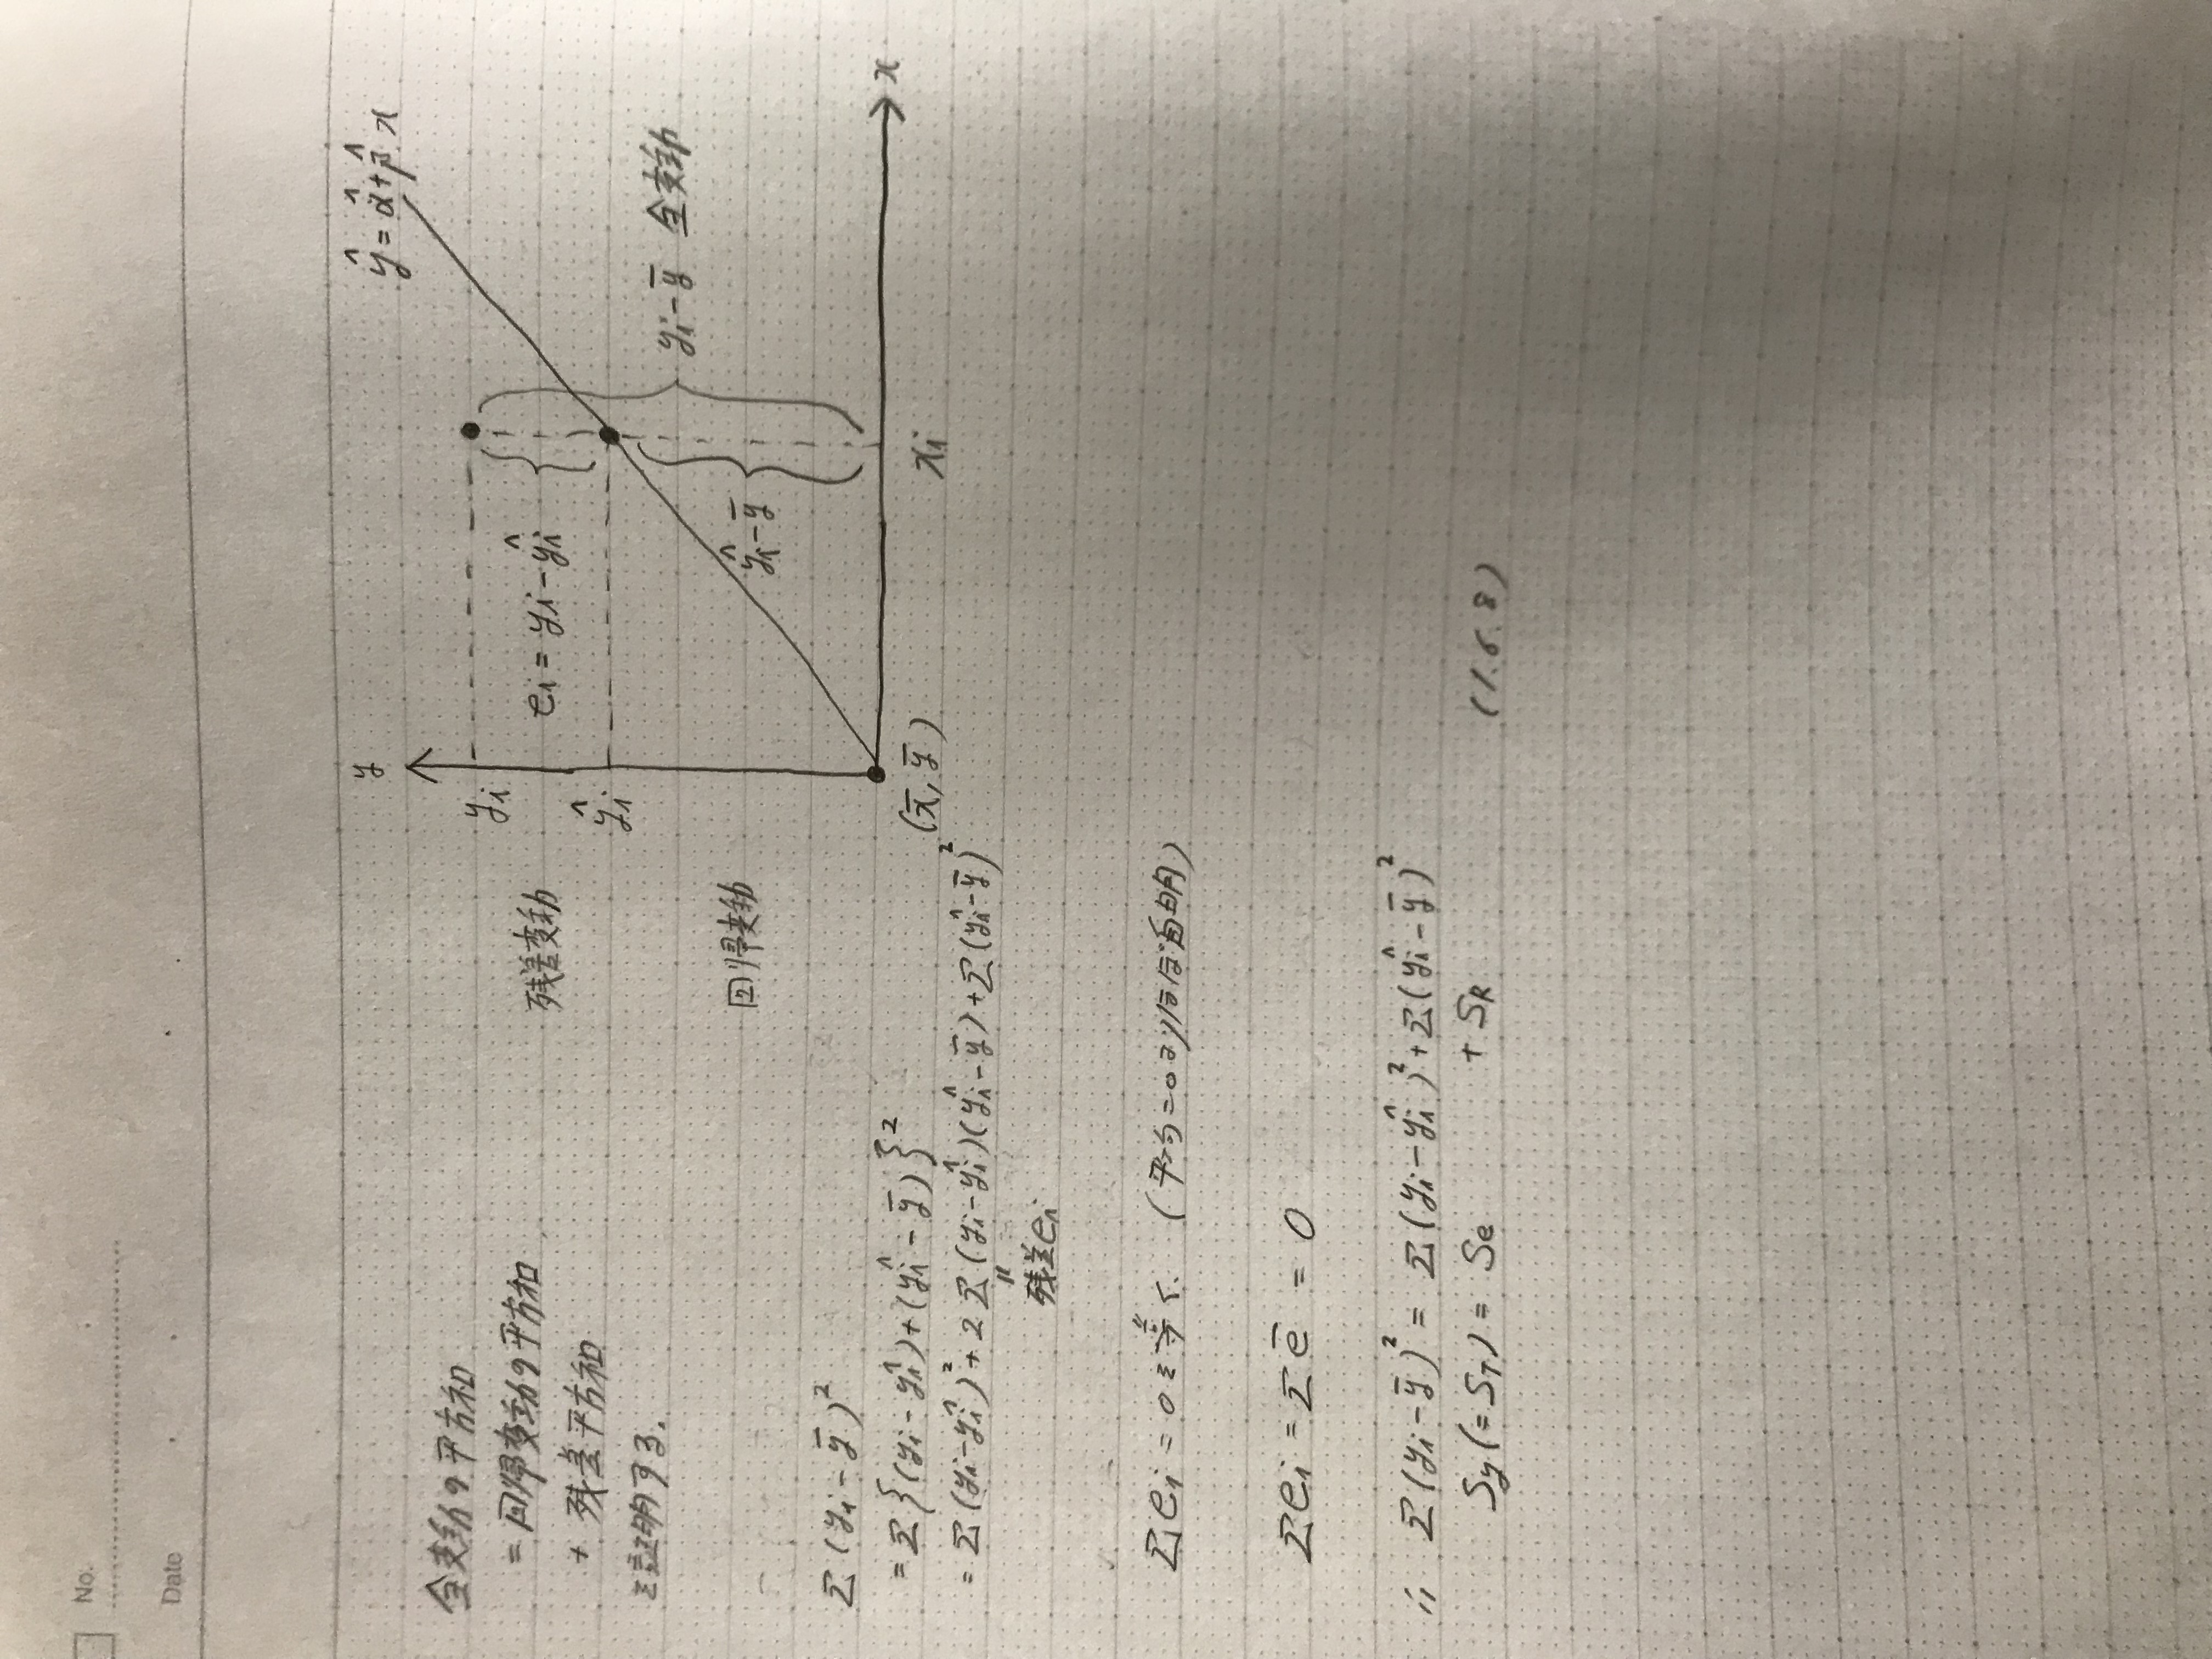 No.
Date
全変動の平方和
= 回帰変動の平方和
+ 残差平方和
を証明する.
y
ŷ = α̂ + β̂ x
yi
残差変動
ei = yi - ŷi
ŷi
yi - ȳ 全変動
回帰変動
ŷi - ȳ
x
(x̄, ȳ)
xi
Σ(yi - ȳ)²
= Σ{(yi - ŷi) + (ŷi - ȳ)}²
= Σ(yi - ŷi)² + 2Σ(yi - ŷi)(ŷi - ȳ) + Σ(ŷi - ȳ)²
〃
残差ei
Σei = 0を示く. (平均=0よりほぼ自明)
Σei = Σē = 0
∴ Σ(yi - ȳ)² = Σ(yi - ŷi)² + Σ(ŷi - ȳ)²
Sy(=ST) = Se + SR (1.6.8)